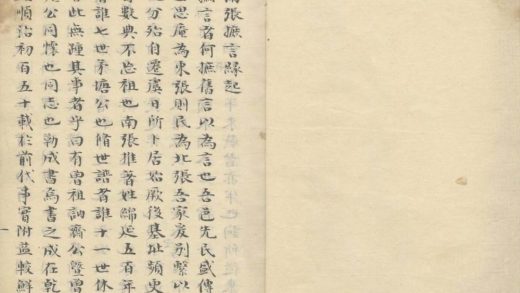 張摭言緣起
摭言者何摭舊言以為言也吾邑先民盛傳
思庵為東張則民為北張吾家爰別繫以
分殆自遷虞日所卜居始厥後基址頻
數典不忘祖也南張推著姓綿延五百年
者誰七世蒙塘公也脩世譜者誰十一世休
此無踵其事者乎向有曾祖訥齋公暨曾
公同懷也同志也勒成書焉書之成在乾
順治初百五十載於前代事實附益較鮮